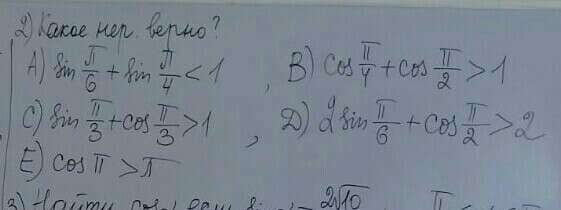 2) Какое нер. верно?
A) sin π/6 + sin π/4 < 1 , B) cos π/4 + cos π/2 > 1
C) sin π/3 + cos π/3 > 1 , D) 2 sin π/6 + cos π/2 > 2
E) cos π > π
3) Найти 2√10